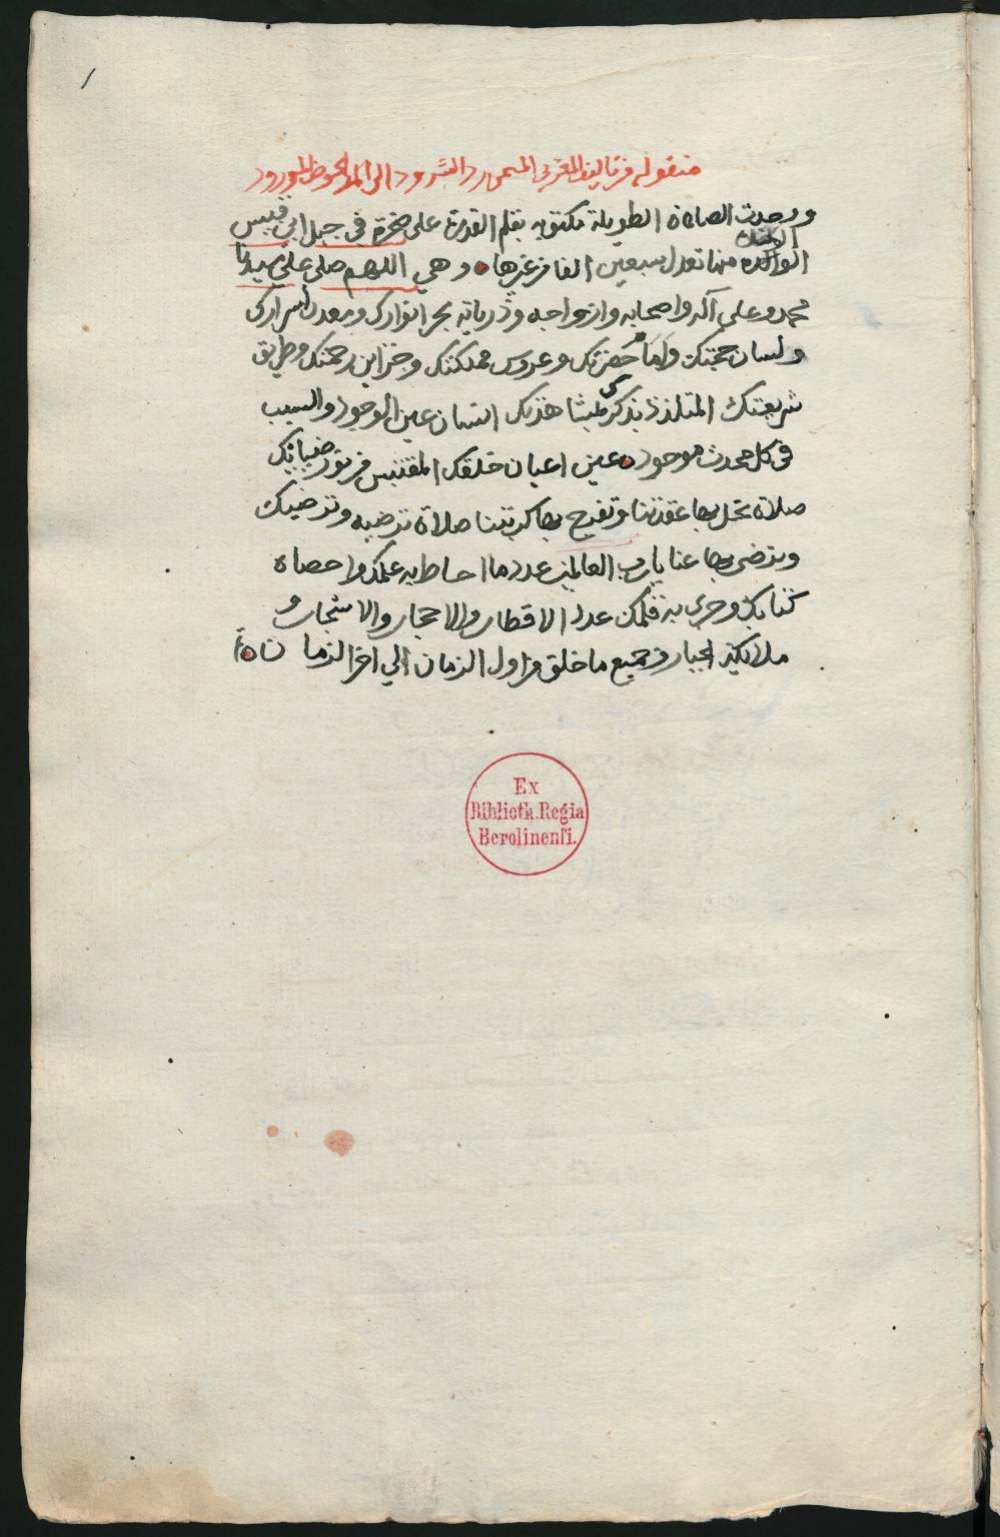 منقوله من تاليف المغربي المسمى رد الشرود الى الحوض المورود
ووجدت الصلاة الطويلة مكتوبه بقلم القدرة على صخرة في جبل ابي قبيس
الواحدة منها تعدل سبعين الفا من غيرها وهي اللهم صلي على سيدنا
محمد وعلى آله واصحابه وازواجه وذرياته بحر انوارك ومعدن اسرارك
ولسان حجتك وامام حضرتك وعروس مملكتك وخزاين رحمتك وطريق
شريعتك المتلذذ بذكرك بمشاهدتك انسان عين الوجود والسبب
في كل محدث موجود عين اعيان خلقك المقتبس من نور ضيائك
صلاة تحل بها عقدتنا وتفرج بها كربتنا صلاة ترضيه وترضيك
وترضى بها عنا يا رب العالمين عدد ما احاط به علمك واحصاه
كتابك وجرى به قلمك عدد الاقطار والاحجار والاشجار و
ملائكة الجبار وجميع ما خلق من اول الزمان الي اخر الزمان
Ex
Biblioth. Regia
Berolinensi.